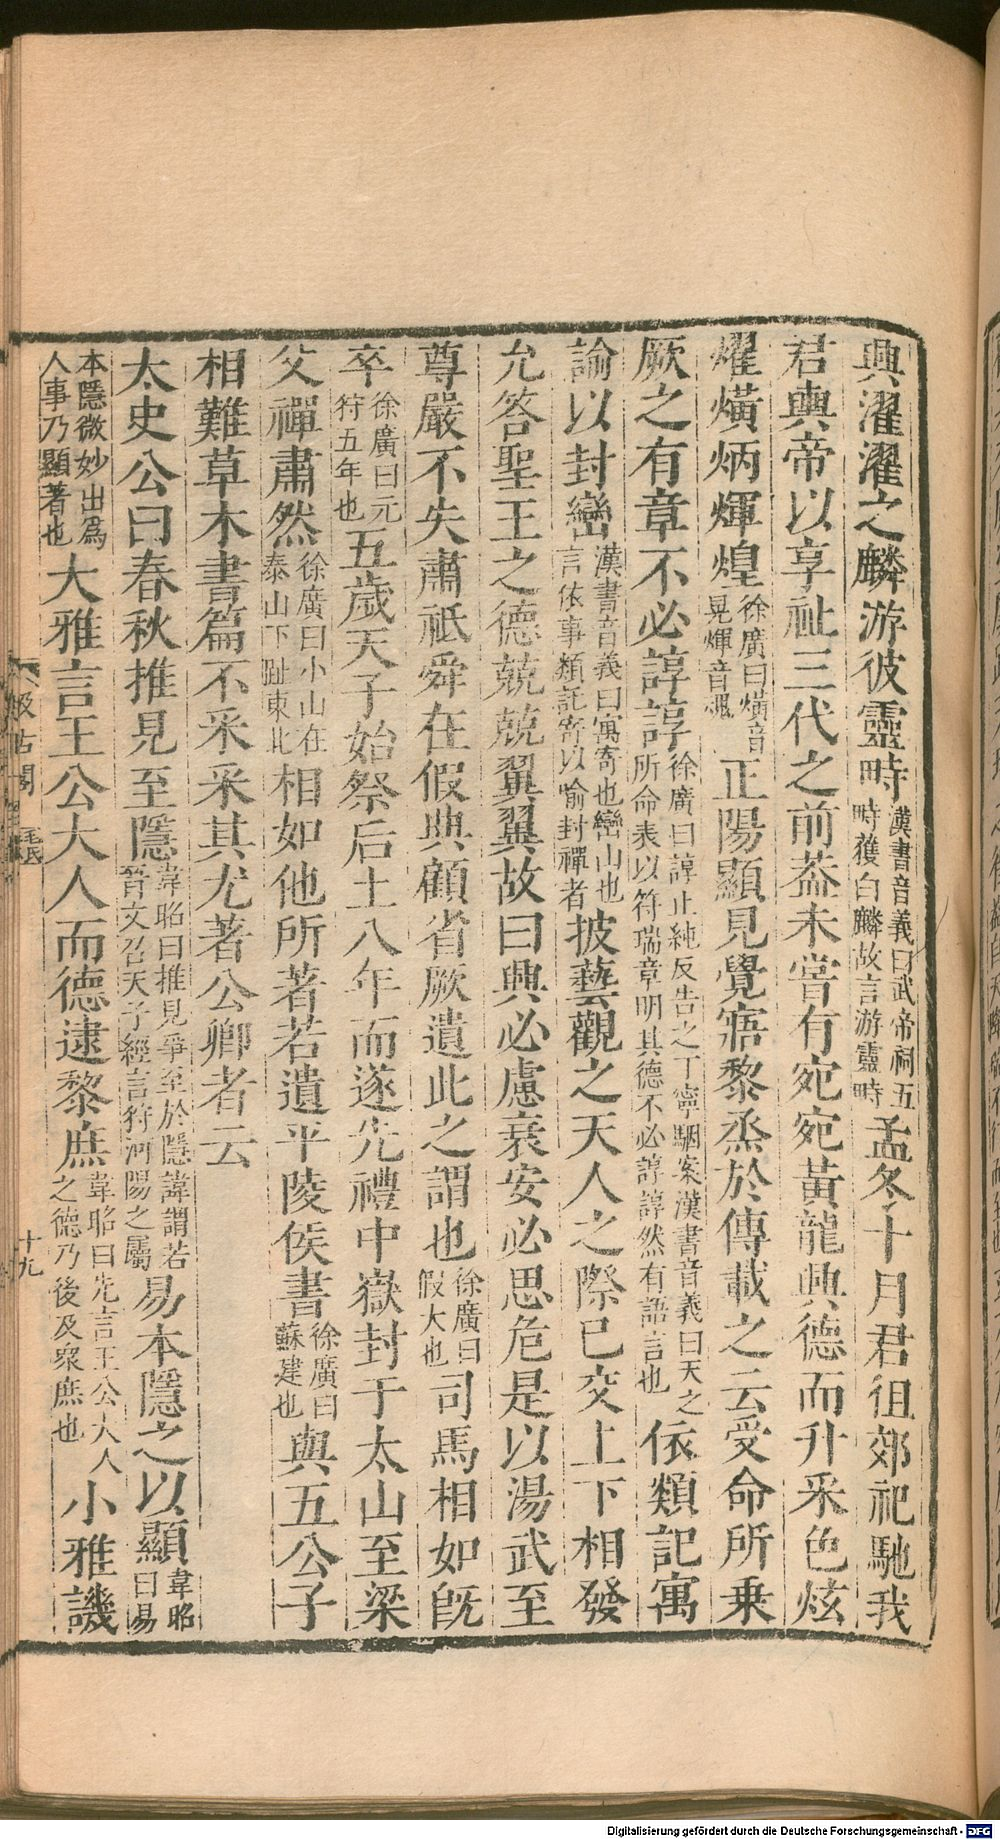 興濯濯之麟游彼靈畤漢書音義曰武帝祠五畤獲白麟故言游靈畤孟冬十月君徂郊祀馳我
君輿帝以享祉三代之前蓋未嘗有宛宛黃龍興德而升采色炫
燿熿炳煇煌徐廣曰熿音晃煇音魂正陽顯見覺寤黎烝於傳載之云受命所乗
厥之有章不必諄諄徐廣曰諄止純反告之丁寧駰案漢書音義曰天之所命表以符瑞章明其德不必諄諄然有語言也依類記寓
諭以封巒漢書音義曰寓寄也巒山也言依事類託寄以喻封禪者披藝觀之天人之際已交上下相發
允答聖王之德兢兢翼翼故曰興必慮衰安必思危是以湯武至
尊嚴不失肅祗舜在假典顧省厥遺此之謂也徐廣曰假大也司馬相如旣
卒徐廣曰元狩五年也五歲天子始祭后土八年而遂先禮中嶽封于太山至梁
父禪肅然徐廣曰小山在泰山下阯東北相如他所著若遺平陵侯書徐廣曰蘇建也與五公子
相難草木書篇不采采其尤著公卿者云
太史公曰春秋推見至隱韋昭曰推見事至於隱諱謂若晉文召天子經言狩河陽之屬易本隱之以顯韋昭曰易
本隱微妙出爲人事乃顯著也大雅言王公大人而德逮黎庶韋昭曰先言王公大人之德乃後及衆庶也小雅譏
汲古閣
十九
Digitalisierung gefördert durch die Deutsche Forschungsgemeinschaft - DFG